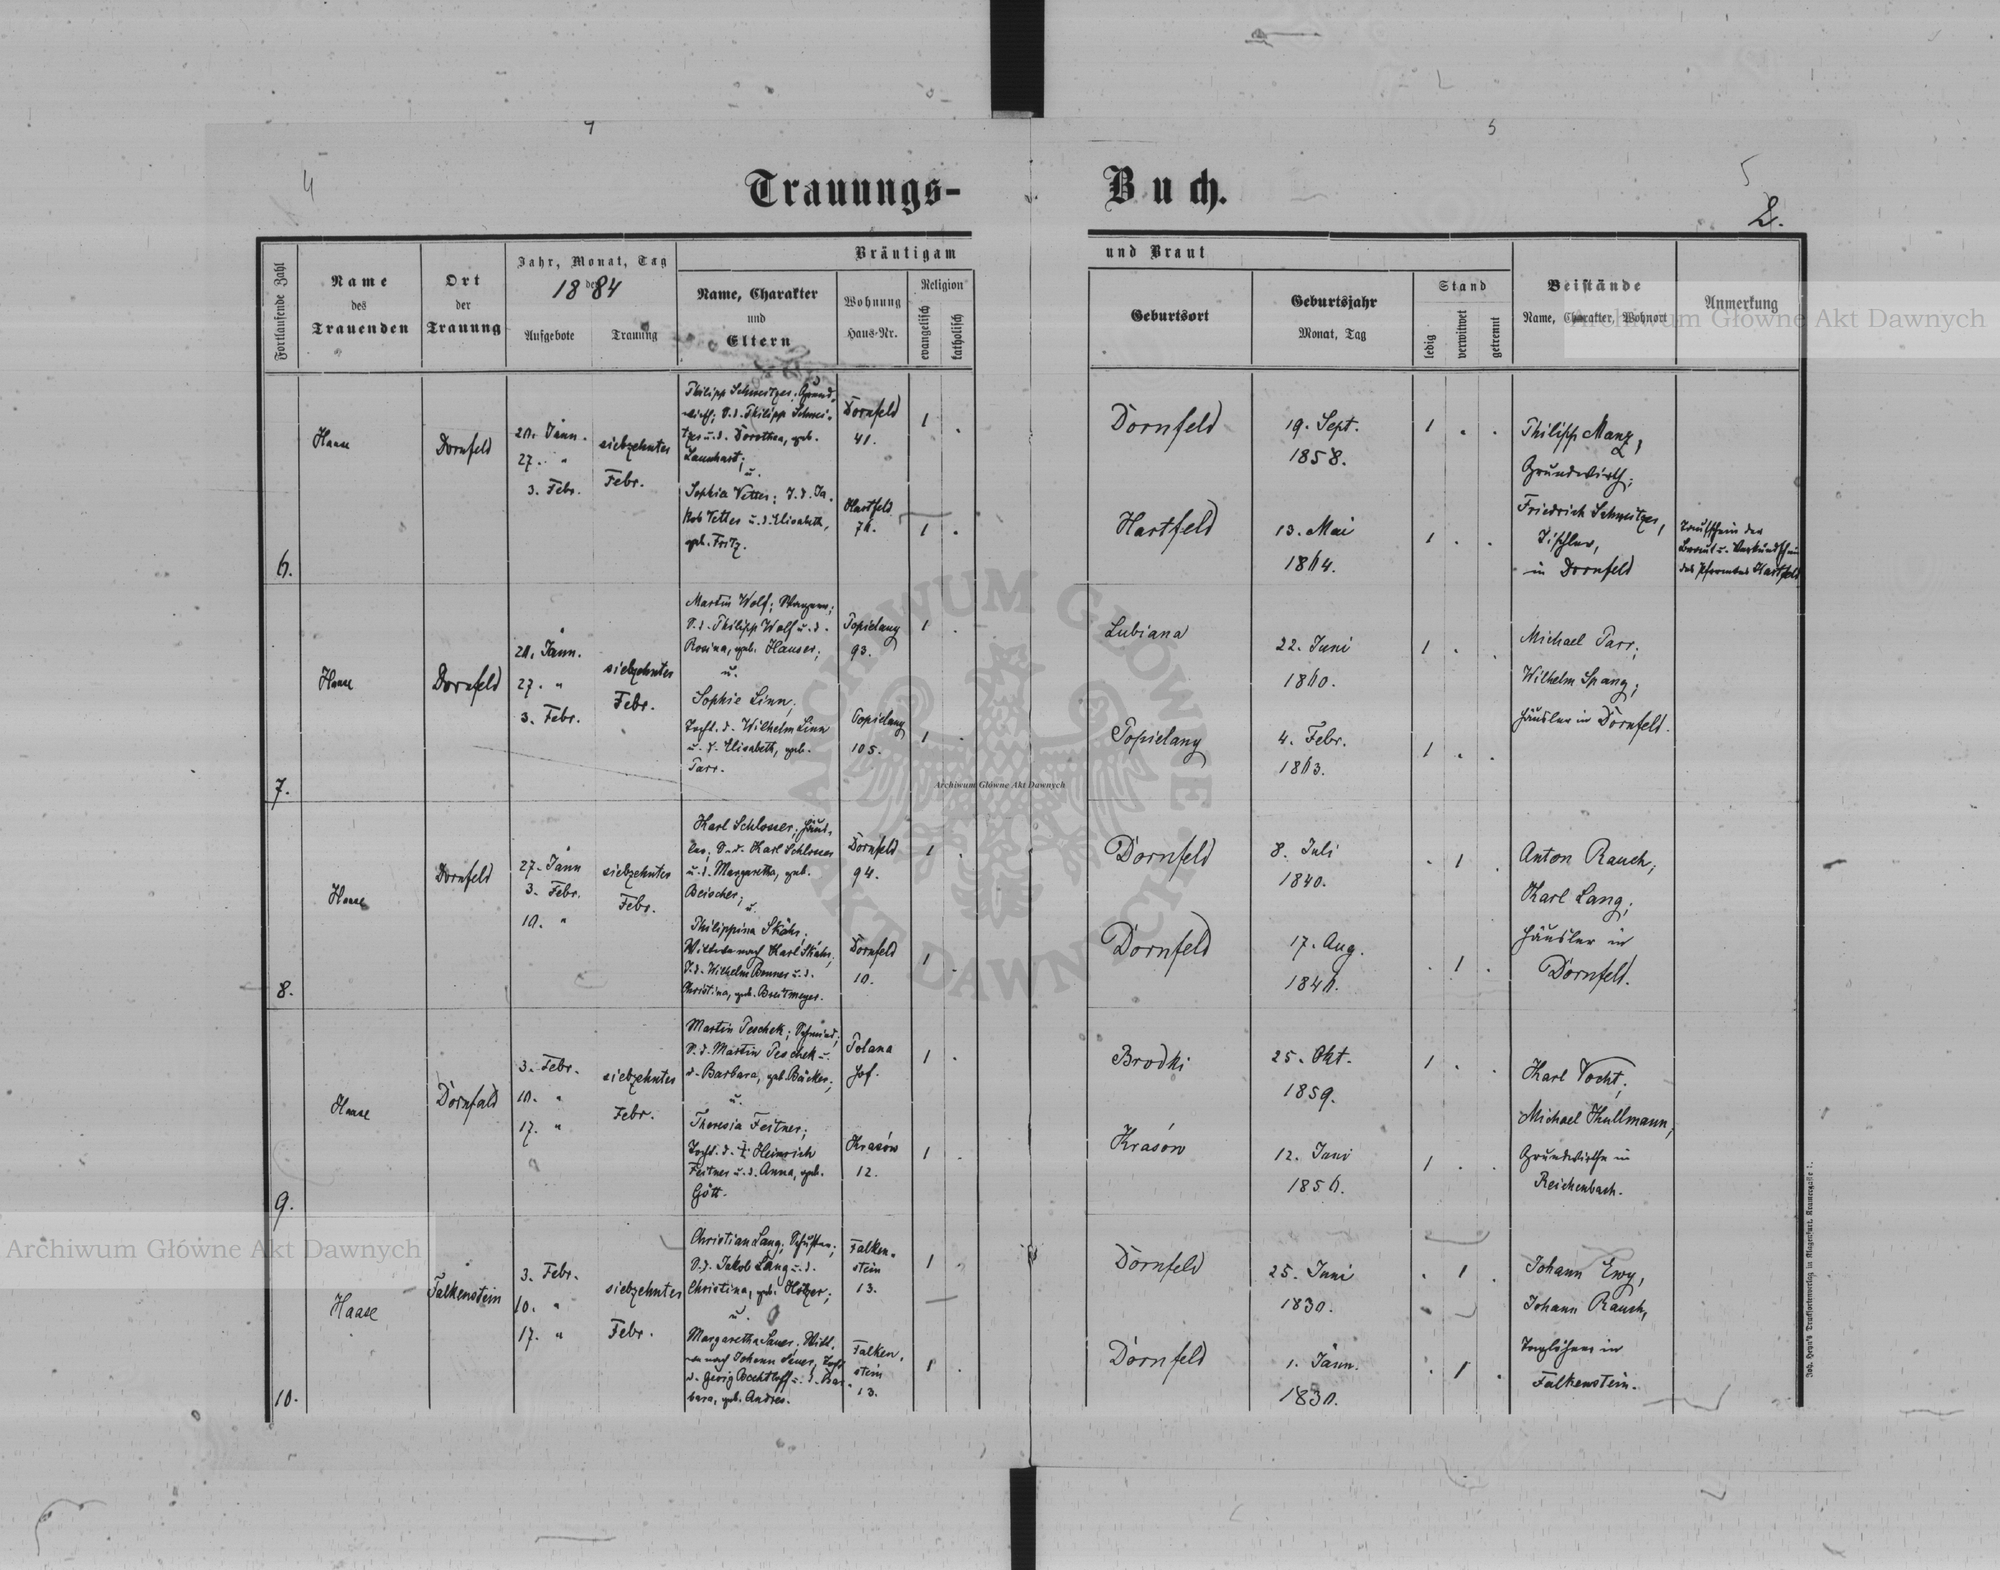 4
5
4
5
Trauungs-
Buch.
2.
Fortlaufende Zahl
Name
des
Trauenden
Ort
der
Trauung
Jahr, Monat, Tag
der
1884
Aufgebote
Trauung
Bräutigam
und Braut
Name, Charakter
und
Eltern
Wohnung
Haus-Nr.
Religion
evangelisch
katholisch
Geburtsort
Geburtsjahr
Monat, Tag
Stand
ledig
verwitwet
getrennt
Beistände
Name, Charakter, Wohnort
Anmerkung
6.
Haase
Dornfeld
20. Jänn.
27. "
3. Febr.
siebzehnter
Febr.
Philipp Schweitzer, Grund-
wirth; S. d. Philipp Schwei-
tzer u. d. Dorothea, geb.
Launhart;
u.
Sophia Vetter; T. d. Ja-
kob Vetter u. d. Elisabeth,
geb. Fritz.
Dornfeld
41.
Hartfeld
76.
1 .
1 .
Dornfeld
Hartfeld
19. Sept.
1858.
13. Mai
1864.
1 . .
1 . .
Philipp Manz,
Grundwirth;
Friedrich Schweitzer,
Tischler,
in Dornfeld
Taufschein der
Braut u. Verkündschein
des Pfarramtes Hartfeld
7.
Haase
Dornfeld
20. Jänn.
27. "
3. Febr.
siebzehnter
Febr.
Martin Wolf;
S. d. Philipp Wolf u. d.
Rosina, geb. Hauser;
u.
Sophie Linn;
Tocht. d. Wilhelm Linn
u. d. Elisabeth, geb.
Parr.
Popielany
93.
Popielany
105.
1 .
1 .
Lubiana
Popielany
22. Juni
1860.
4. Febr.
1863.
1 . .
1 . .
Michael Parr;
Wilhelm Spang;
Häusler in Dornfeld.
8.
Haase
Dornfeld
27. Jänn
3. Febr.
10. "
siebzehnter
Febr.
Karl Schlosser; Häus-
ler; S. d. Karl Schlosser
u. d. Margaretha, geb.
Beischer;
u.
Philippina Stähr;
Wittwe nach Karl Stähr;
T. d. Wilhelm Bonner u. d.
Christina, geb. Breitmeyer.
Dornfeld
94.
Dornfeld
10.
1 .
1 .
Dornfeld
Dornfeld
8. Juli
1840.
17. Aug.
1846.
. 1 .
. 1 .
Anton Rauch;
Karl Lang;
Häusler in
Dornfeld.
9.
Haase
Dornfeld
3. Febr.
10. "
17. "
siebzehnter
Febr.
Martin Peschek; Schmied;
S. d. Martin Peschek u.
d. Barbara, geb. Bäcker;
u.
Theresia Feitner;
Tocht. d. † Heinrich
Feitner u. d. Anna, geb.
Gött.
Polana
Hof.
Krasów
12.
1 .
1 .
Brodki
Krasów
25. Okt.
1859.
12. Juni
1856.
1 . .
1 . .
Karl Vocht;
Michael Kullmann,
Grundwirthe in
Reichenbach.
10.
Haase
Falkenstein
3. Febr.
10. "
17. "
siebzehnter
Febr.
Christian Lang; Schuster;
S. d. Jakob Lang u. d.
Christina, geb. Hötzer;
u.
Margaretha Sauer; Wittw.
nach Johann Sauer, Tocht.
d. Georg Bechtloff u. d. Bar-
bara, geb. Andres.
Falken-
stein
13.
Falken-
stein
13.
1
1 .
Dornfeld
Dornfeld
25. Juni
1830.
1. Jänn.
1830.
. 1 .
. 1 .
Johann Ewy,
Johann Rauch,
Taglöhner in
Falkenstein.
Joh. Heyn's Drucksortenverlag in Klagenfurt, Kramergasse 1.
Archiwum Główne Akt Dawnych
Archiwum Główne Akt Dawnych
Archiwum Główne Akt Dawnych
ARCHIWUM GŁÓWNE AKT DAWNYCH